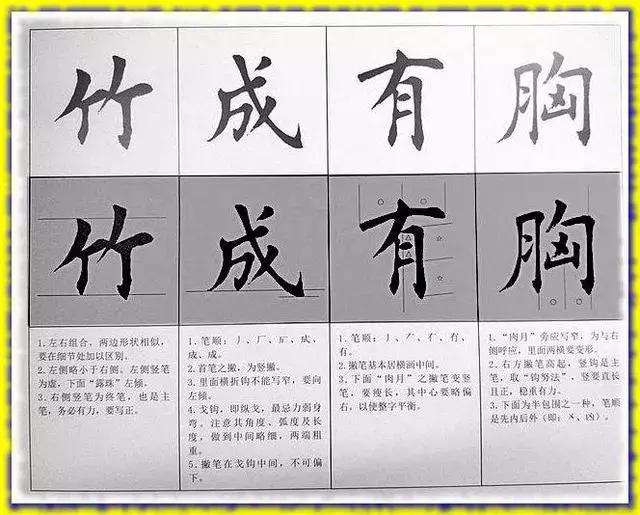 竹 成 有 胸
竹 成 有 胸
1. 左右组合，两边形状相似，
要在细节处加以区别。
2. 左侧略小于右侧。左侧竖笔
为虚，下面“露珠”左倾。
3. 右侧竖笔为终笔，也是主
笔，务必有力，要写正。
成、成。
2. 首笔之撇，为竖撇。
3. 里面横折钩不能写窄，要向
左倾。
4. 戈钩，即纵戈，最忌力弱身
弯。注意其角度、弧度及长
度，做到中间略细，两端粗
重。
5. 撇笔在戈钩中间，不可偏
下。
有。
2. 撇笔基本居横画中间。
3. 下面“肉月”之撇笔变竖
笔，要瘦长，其中心要略偏
右，以使整字平衡。
1. “肉月”旁应写窄，为与右
侧呼应，里面两横要变形。
2. 右方撇笔高起，竖钩是主
笔，取“钩努法”，竖要直长
且正，稳重有力。
3. 下面为半包围之一种，笔顺
是先内后外（即：㐅、凶）。